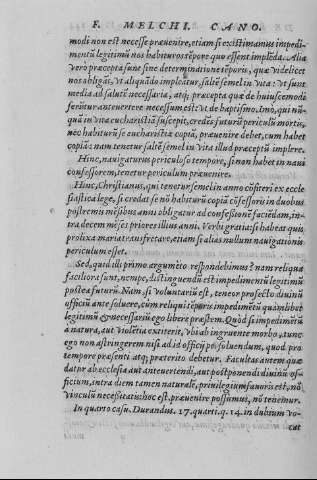 F. MELCHI. CANO.
modi non est necesse præuenire, etiam si existimamus impedi-
mentũ legitimũ nos habituros tẽpore quo essent implẽda. Alia
verò præcepta sunt sine determinatione tẽporis, quæ videlicet
nos obligãt, vt aliquãdo impleãtur, saltẽ semel in vita: vt sunt
media ad salutẽ necessaria, atq; præcepta quæ de huiuscemodi
ferũtur anteuertere necessum est: vt de baptismo. Imo, qui nũ-
quã in vita eucharistiã suscepit, credẽs futurũ periculũ mortis,
nec habiturũ se eucharistiæ copiã, præuenire debet, cum habet
copiã: nam tenetur saltẽ semel in vita illud præceptũ implere.
Hinc, nauigaturus periculoso tempore, si non habet in naui
confessorem, tenetur periculum præuenire.
Hinc, Christianus, qui tenetur semel in anno cõfiteri ex eccle
siastica lege, si credat se nõ habiturũ copiã cõfessoris in duobus
postremis mẽsibus anni obligatur ad confessionẽ faciẽdam, in-
tra decem mẽses priores illius anni. Verbi gratia: si habeat quis
prolixa maria transfretare, etiam si alias nullum nauigationis
periculum esset.
Sed, quid illi primo argumẽto respondebimus? nam reliqua
faciliora sunt, nempe, distinguendũ est impedimentũ legitimũ
postea futurũ. Nam, si voluntariũ est, teneor profectò diuinũ
officiũ ante soluere, cũm reliqui tẽporis impedimẽtũ quamlibet
legitimũ & necessariũ ego liberè præstem. Quòd si impedimẽtũ
à natura, aut violẽtia extiterit, vbi ab ingruente morbo, tunc
ego non astringerem ipsa ad id officij persoluendum, quod pro
tempore præsenti atq; præterito debetur. Facultas autem quæ
datur ab ecclesia aut anteuertendi, aut postponendi diuinũ of-
ficium, intra diem tamen naturalẽ, priuilegium fauoris est, nõ
vinculũ necessitatis: hoc est. præuenire possumus, nõ tenemur.
In quarto casu. Durandus. 17. quarti. q. 14. in dubium vo-
cat